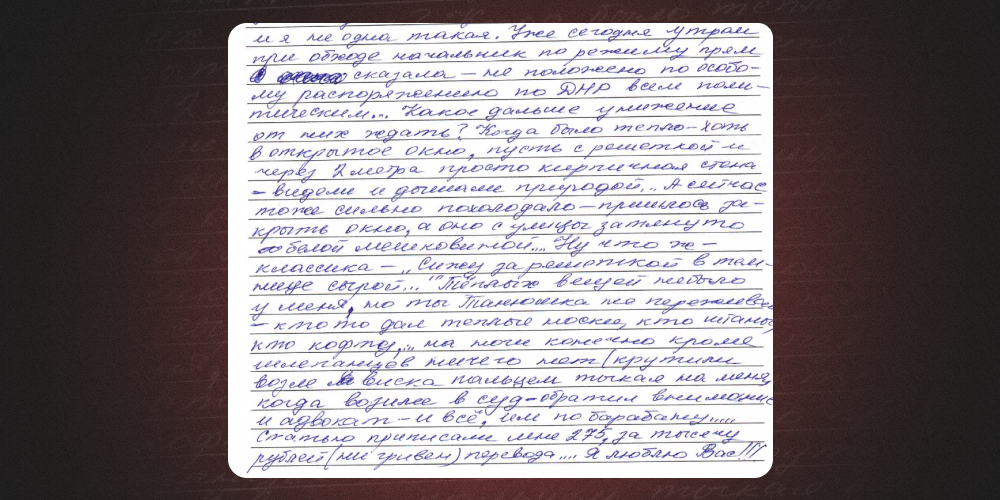 и я не одна такая. Уже сегодня утром
при обходе начальник по режиму прям
сказала – не положено по особо-
му распоряжению по ДНР всем поли-
тическим... Какое дальше унижение
от них ждать? Когда было тепло – хоть
в открытое окно, пусть с решеткой и
через 2 метра просто кирпичная стена
– видели и дышали природой... А сейчас
тоже сильно похолодало – пришлось за-
крыть окно, а оно с улицы затянуто
белой мешковиной.... Ну что ж –
классика – „Сижу за решеткой в тем-
нице сырой..." Тёплых вещей небыло
у меня, но ты Танюшка не переживай
– кто то дал теплые носки, кто штаны,
кто кофту,... на ноги конечно кроме
шлепанцев ничего нет (крутили
возле виска пальцем тыкая на меня,
когда возили в суд – обратил внимание
и адвокат – и всё, им по барабану.....
Статью приписали мне 275, за тысячу
рублей (ни гривен) перевода.... Я люблю Вас!!!